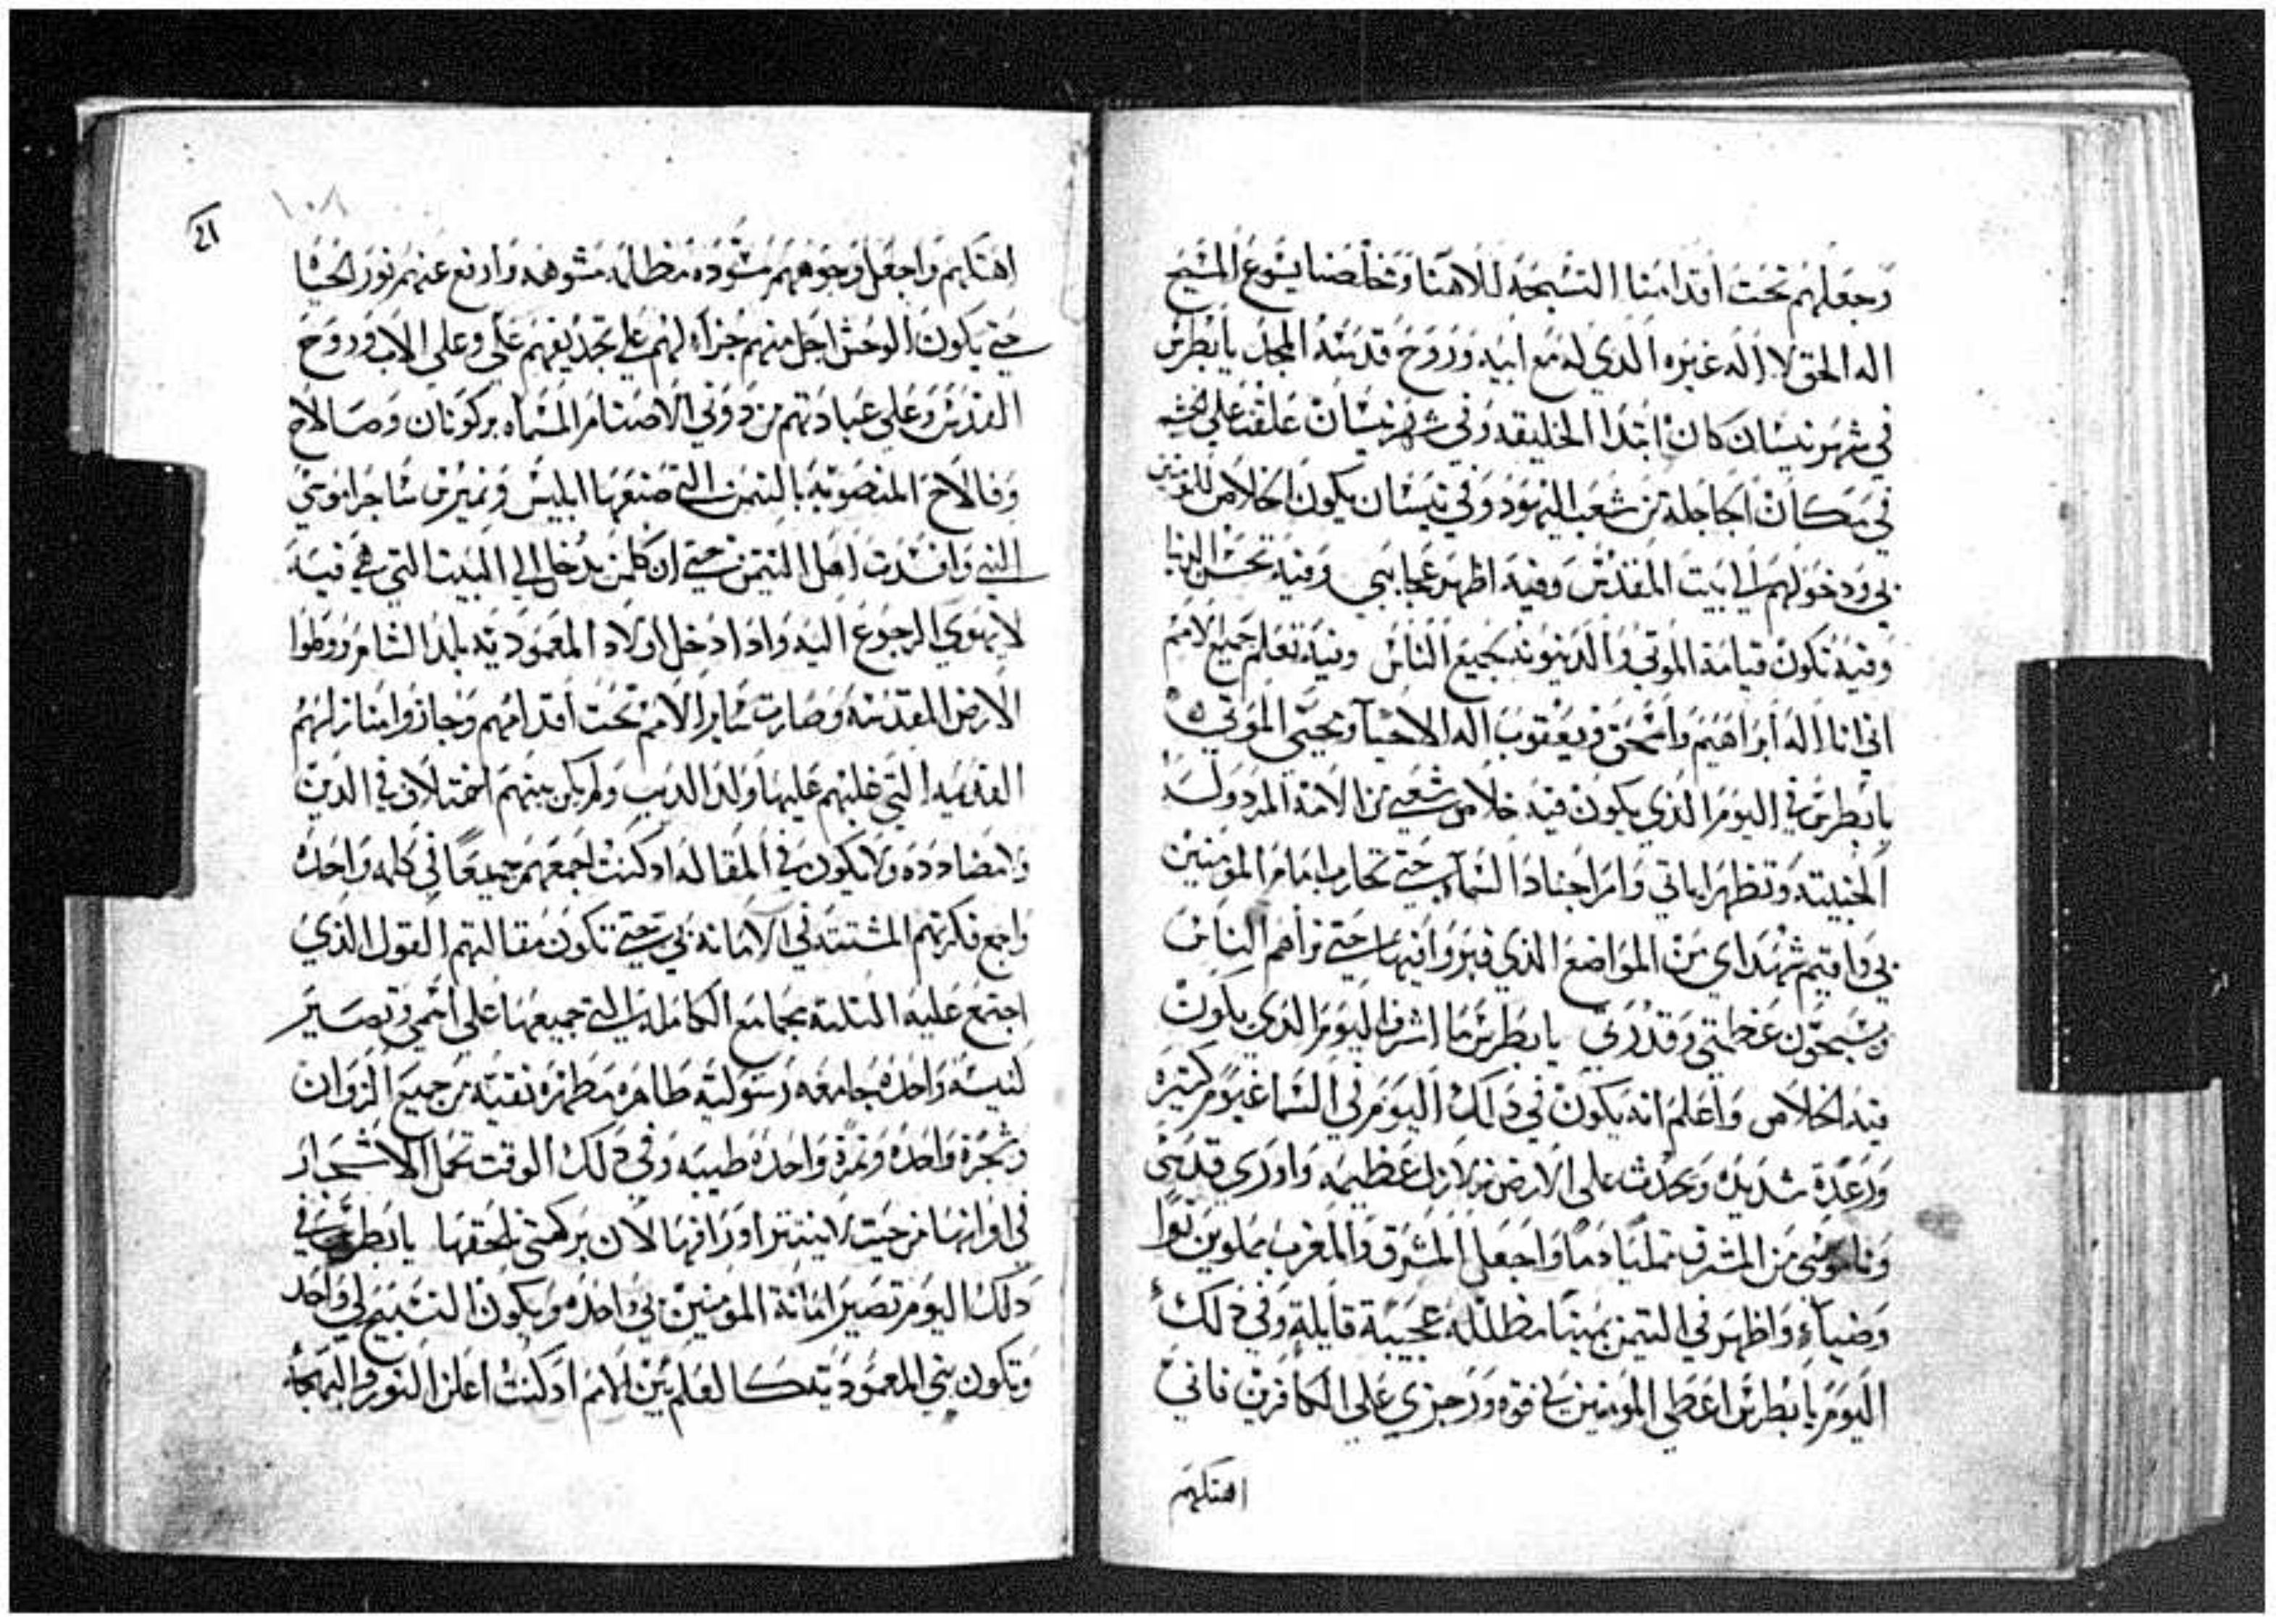 وجعلهم تحت اقدامنا التسبحه لالاهنا ومخلصنا يسوع المسيح
اله الحق لا اله غيره الذي له مع ابيه وروح قدسه المجد يا بطرس
في شهر نيسان كان ابتدا الخليقه وفي شهر نيسان علقت علي خشبه
في مكان الجاجلة من شعب اليهود وفي نيسان يكون الخلاص للمومنين
بي ودخولهم الي بيت المقدس وفيه اظهر عجايبي وفيه تحسن الدنيا
وفيه تكون قيامة الموتي والدينونه لجميع الناس وفيه تعلم جميع الامم
اني انا اله ابراهيم واسحق ويعقوب اله الاحيآ ومحيي الموتي
يا بطرس في اليوم الذي يكون فيه خلاص شعبي من الامة المردوله
الخبيثه وتظهر اياتي وامر اجناد السماء حتي تحارب امام المومنين
بي واقيم شهداي من المواضع الذي قبروا فيها حتي يراهم الناس
ويسبحون عظمتي وقدرتي يا بطرس ما اشرف اليوم الذي يكون
فيه الخلاص واعلم انه يكون في دلك اليوم في السما غيوم كثيره
ورعدة شديده ويحدث علي الارض زلازل عظيمه واوري قدسي
وناموسي من المشرق ممليا دما واجعل المشرق والمغرب مملوين نورا
وضيآء واظهر في التيمن مظلله عجيبة قايلة وفي دلك
اليوم يا بطرس اعطي المومنين بي قوه ورجزي علي الكافرين فاني
اهتكهم
١٠٨
اهتكهم واجعل وجوههم مسوده مظلمه مشوهه وارفع عنهم نور الحياه
حتي يكون الوحش اجل منهم جزآء لهم علي تجديفهم علي وعلي الاب وروح
القدس وعلي عبادتهم من دوني الاصنام المسماه بركونان وصالاح
وفالاح المنصوبه بالتيمن التي صنعها ابليس
النبي وافسدت اهل التيمن حتي ان كلمن يدخل الي البيت التي هي فيه
لا يهوي الرجوع اليه وادا دخل اولاد المعموديه بلد الشام ووطوا
الارض المقدسه وصارت ساير الامم تحت اقدامهم وجازوا منازلهم
القديمه التي غلبهم عليها ولد الديب ولم يكن بينهم اختلاف في الدين
ولا مضاددة ولا يكون في المقاله ادكنت اجمعهم جميعا في كلمه واحده
واجمع فكرتهم المشتته في الامانه بي حتي تكون مقالتهم القول الذي
اجتمع عليه الثلثة مجامع الكامله التي جميعها علي اسمي وتصير
كنيسه واحده جامعه رسوليه طاهره مطهره نقيه من جميع الزوان
وشجرة واحده وثمرة واحده طيبه وفي دلك الوقت تحمل الاشجار
في اوانها من حيث لا ينتثر اوراقها لان بركتي تلحقها يا بطرس في
دلك اليوم تصير امانة المومنين بي واحده ويكون التسبيح لي واحد
وتكون بني المعموديه كالعلم بين الامم ادكنت اعلن النور والبهجه